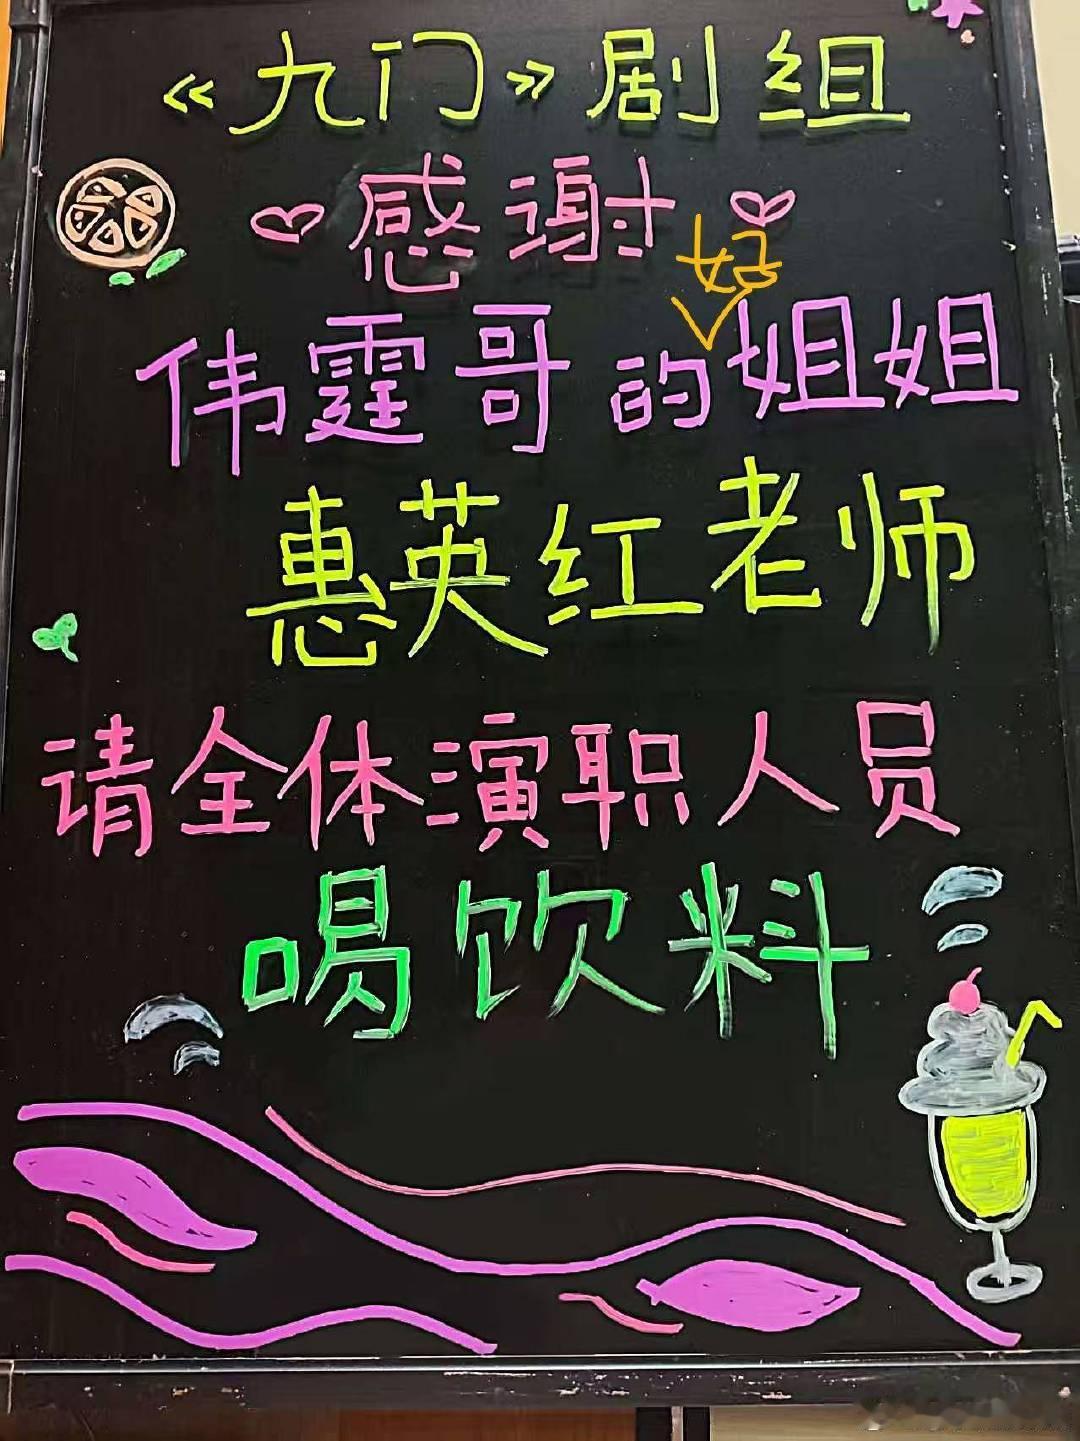 《九门》剧组
感谢
好
伟霆哥的姐姐
惠英红老师
请全体演职人员
喝饮料